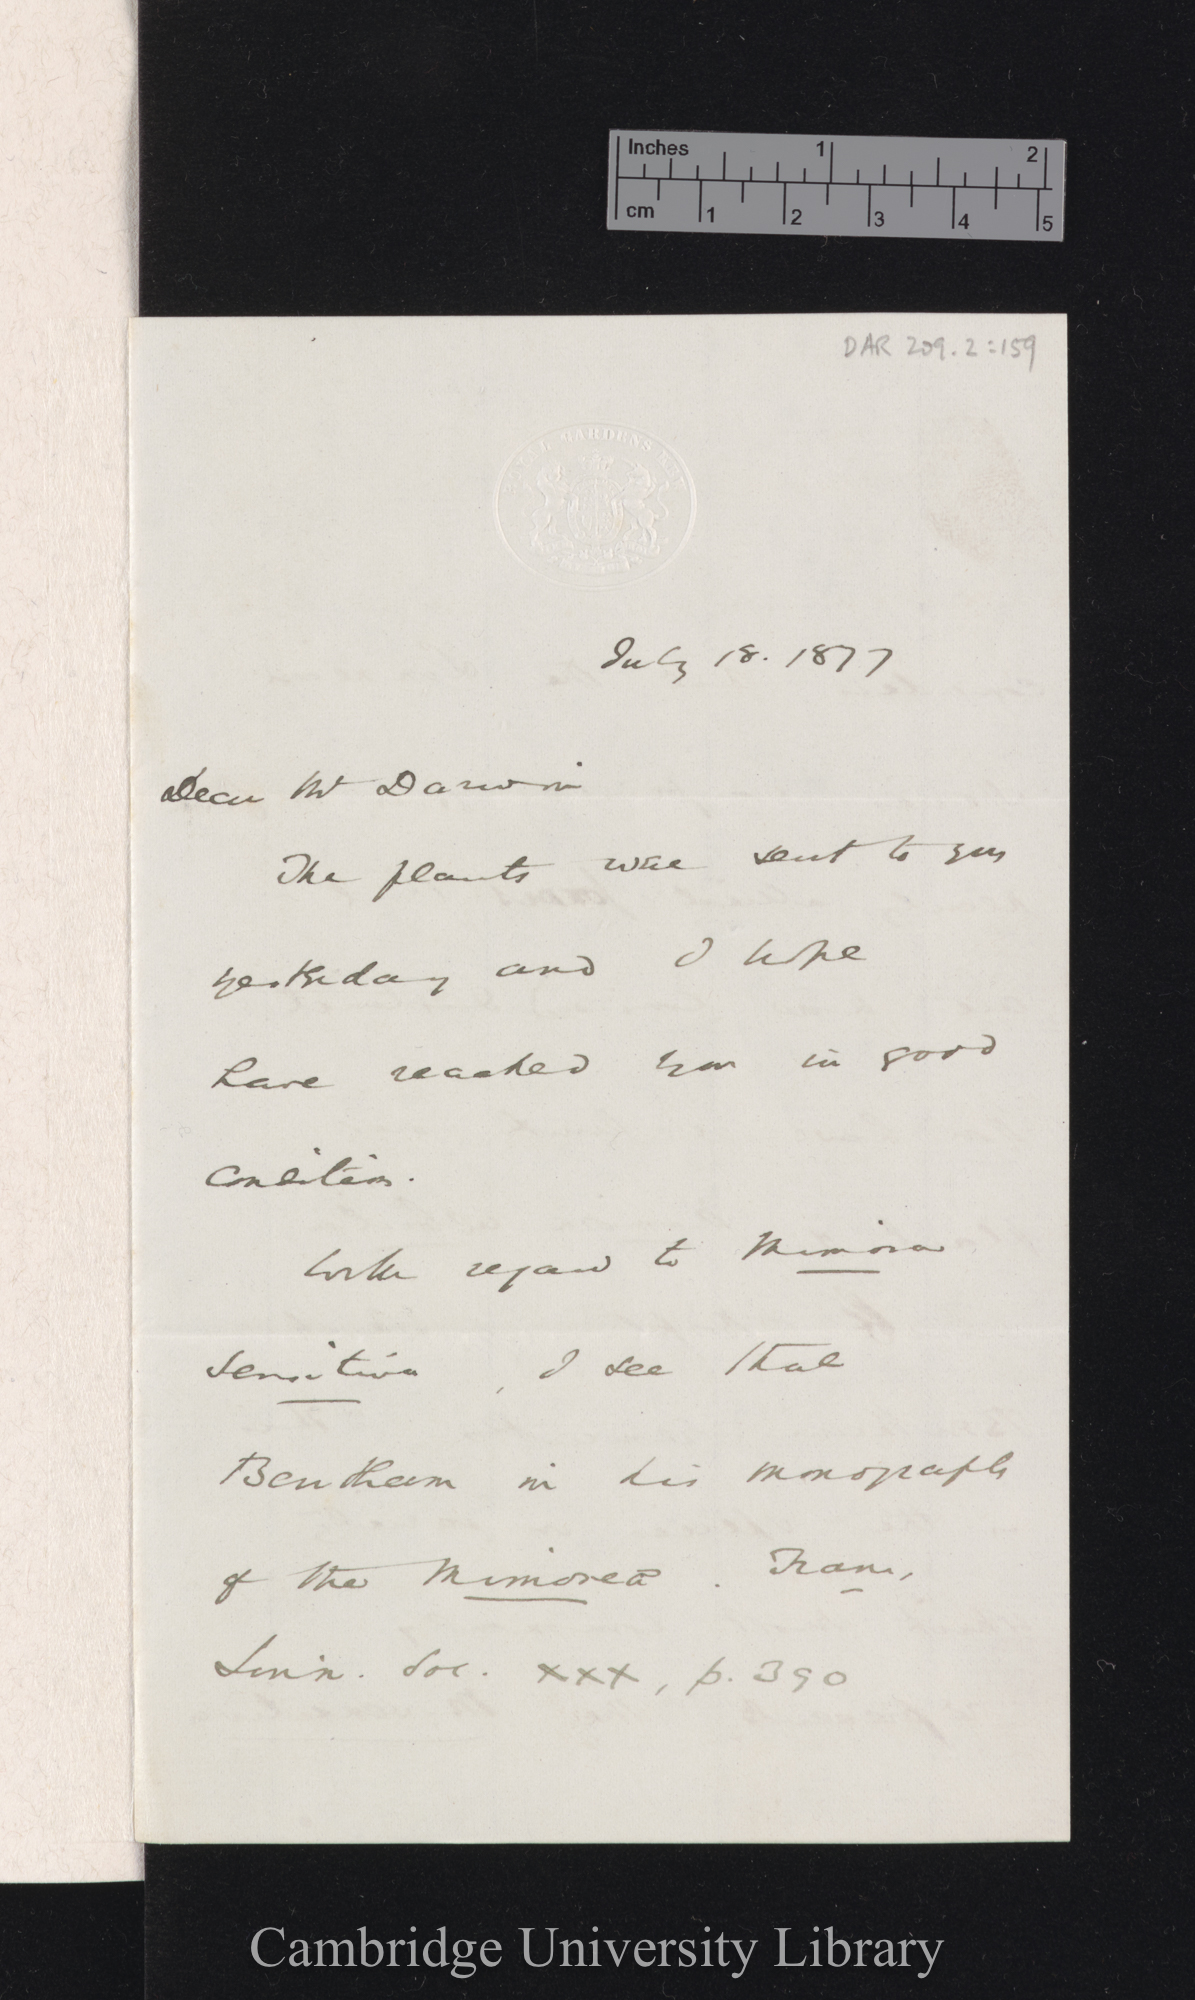 Inches 1 2
cm 1 2 3 4 5
DAR 209.2:159
ROYAL GARDENS KEW
July 18. 1877
Dear Mr Darwin
The plants were sent to you
yesterday and I hope
have reached you in good
condition.
With regard to Mimosa
sensitiva, I see that
Bentham in his monograph
of the Mimoseæ. Trans,
Linn. Soc. xxx, p. 390
Cambridge University Library